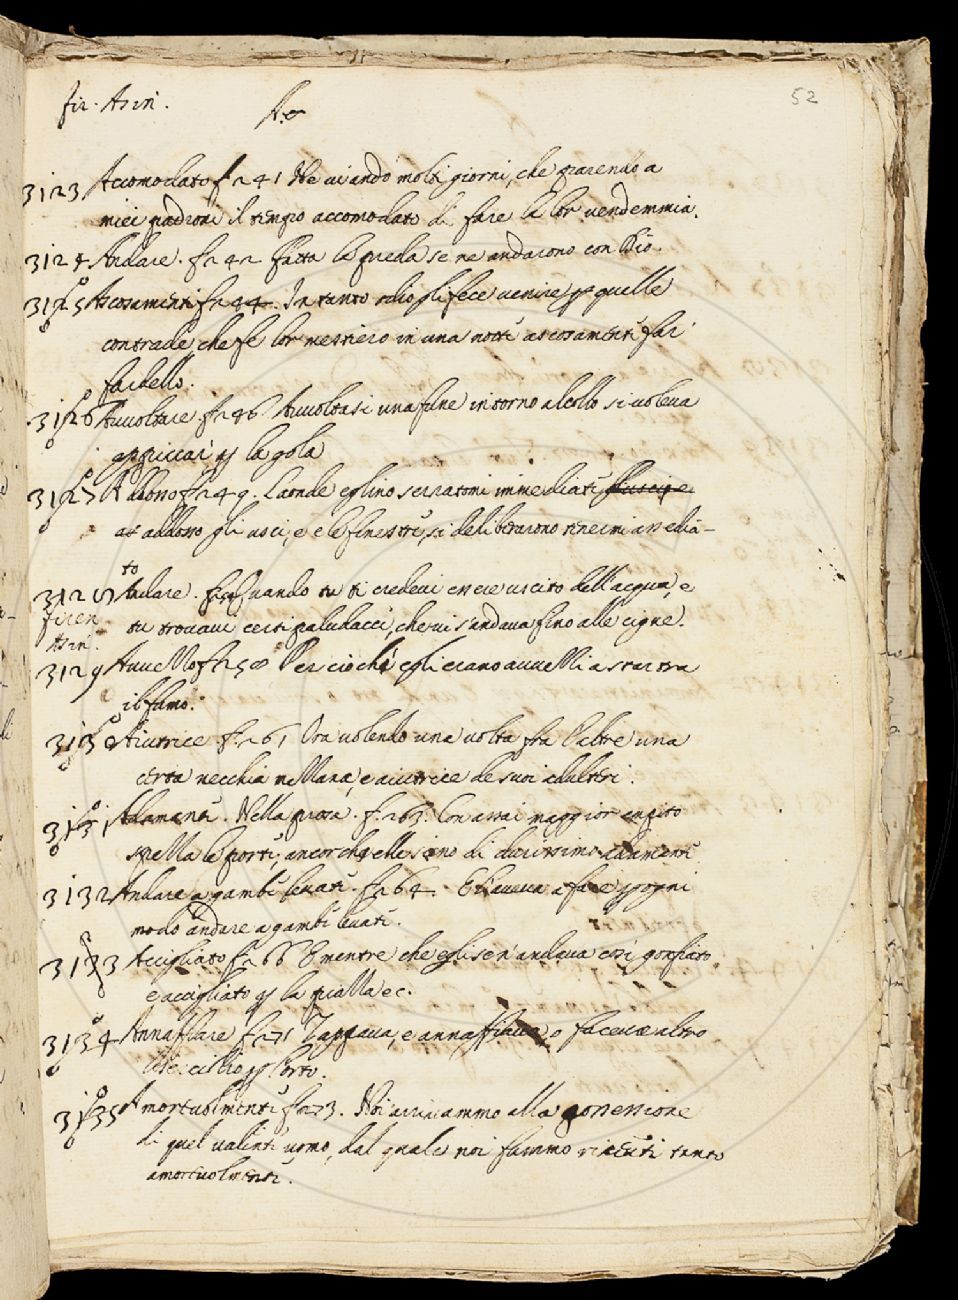 fir. Asin.
A.
52
3123 Accomodato f. 241 Ne ci andò molti giorni, che parendo a
miei padroni il tempo accomodato di fare la lor vendemmia.
3124 Andare. f. 242 Fatta la preda se ne andarono con Dio.
3125 Ascosamenti f. 244. In tanto odio gli fece venire p quelle
contrade che fe lor mestiero in una notti ascosamenti far
fardello.
3126 Avvoltare. f. 246 Avvoltasi una fune intorno al collo si voleva
appiccar p la gola
3127 Addosso f. 249. Laonde eglino serratomi immediati
addosso gli usci, e le finestre, si deliberarono tenermi assedia-
to
3128 Andare. Quando tu ti credevi essere uscito dell'acqua, e
firen
tu trovavi certi paludacci, che vi s'andava fino alle cigne.
Asin.
3129 Avvezzo f. 258 Perciochè egli erano avvezzi a star tra
il fumo.
3130 Aiutrice f. 261 Ora volendo una volta fra l'altre una
certa vecchia, e aiutrice de suoi adulteri.
3131 Adamanti. Nella prosa. f. 263. Con assai maggior empito
spezza le porti, ancorchè elle sieno di durissimo adamanti
3132 Andare a gambi levati. f. 264. a fare p ogni
modo andare a gambi levati.
3133 Accigliato f. 266 E mentre che egli se n'andava così gonfiato
e accigliato p la piazza ec.
3134 Annaffiare f. 271 Zappava, e annaffiava, o faceva altro
p l'orto.
3135 Amorevolmenti f. 273. Noi arrivammo alla possessione
di quel valenti uomo, dal quale noi fummo ricevuti tanto
amorevolmenti.